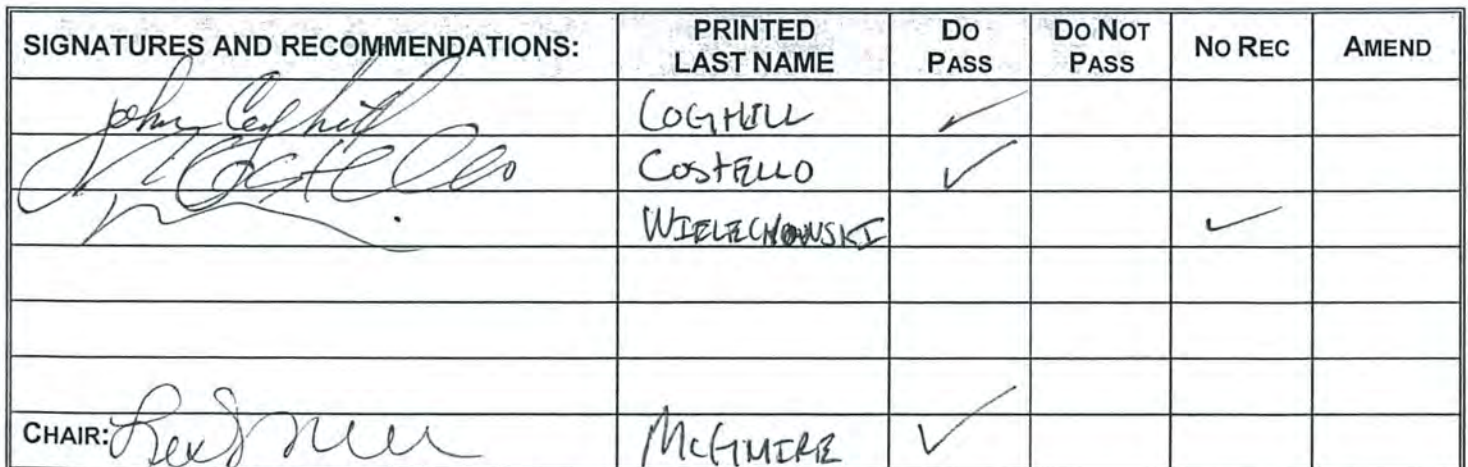 SIGNATURES AND RECOMMENDATIONS: PRINTED LAST NAME DO PASS DO NOT PASS NO REC AMEND
John Coghill COGHILL ✓
Costello COSTELLO ✓
WIELECHOWSKI ✓
CHAIR: MCGUIRE ✓